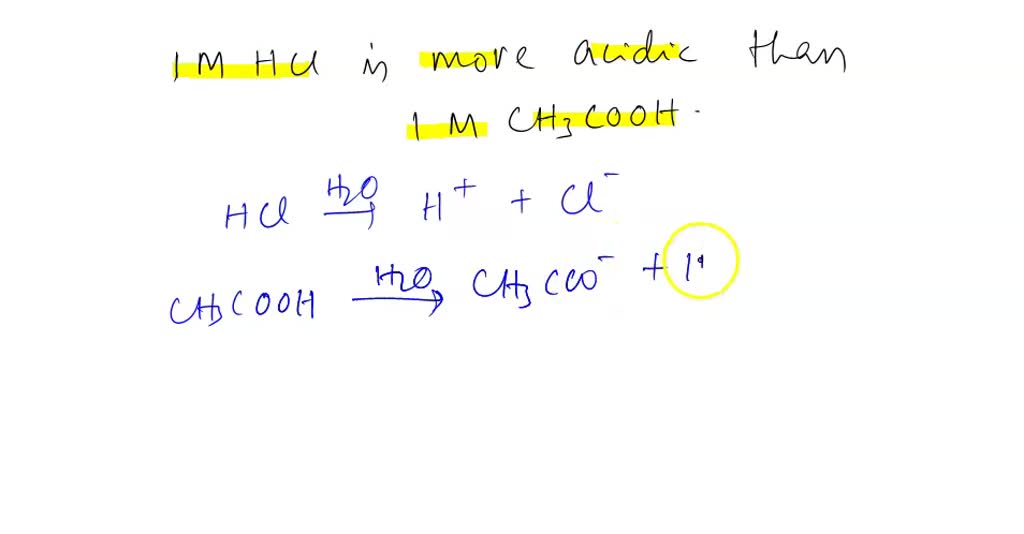 1 M HCl is more acidic than
1 M CH3COOH.
HCl H2O→ H+ + Cl-
CH3COOH H2O→ CH3COO- +